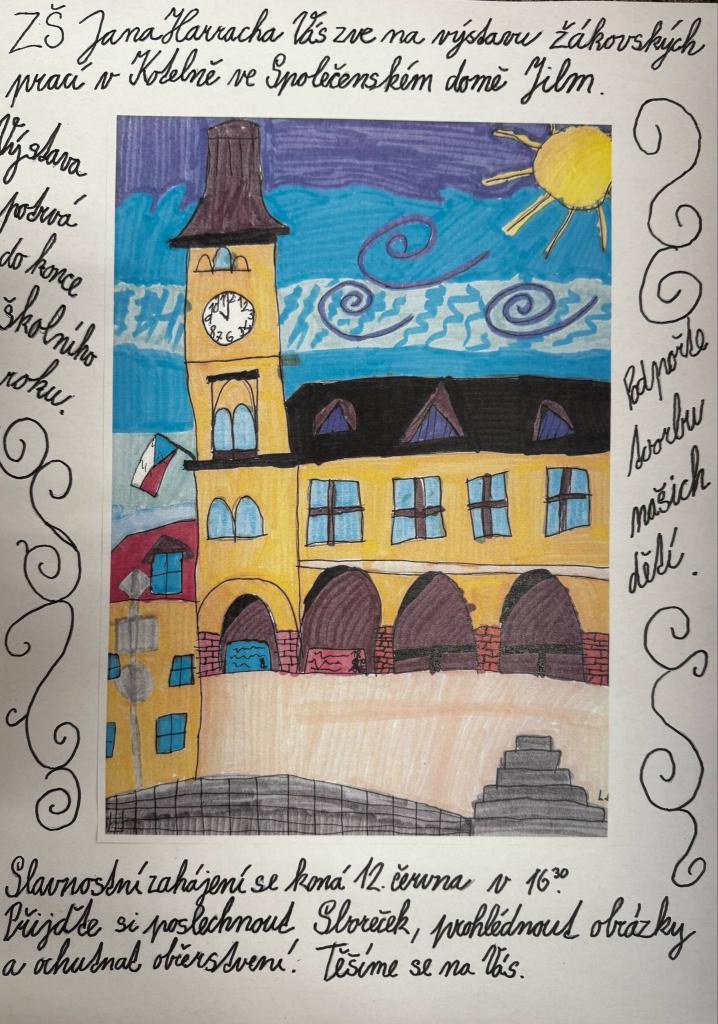 ZŠ Jana Harracha Vás zve na výstavu žákovských
prací v Kotelně ve Společenském domě Jilm.
Výstava
potrvá
do konce
školního
roku.
Podpořte
tvorbu
našich
dětí.
Slavnostní zahájení se koná 12. června v 16³⁰
Přijďte si poslechnout Sboreček, prohlédnout obrázky
a ochutnat občerstvení. Těšíme se na Vás.